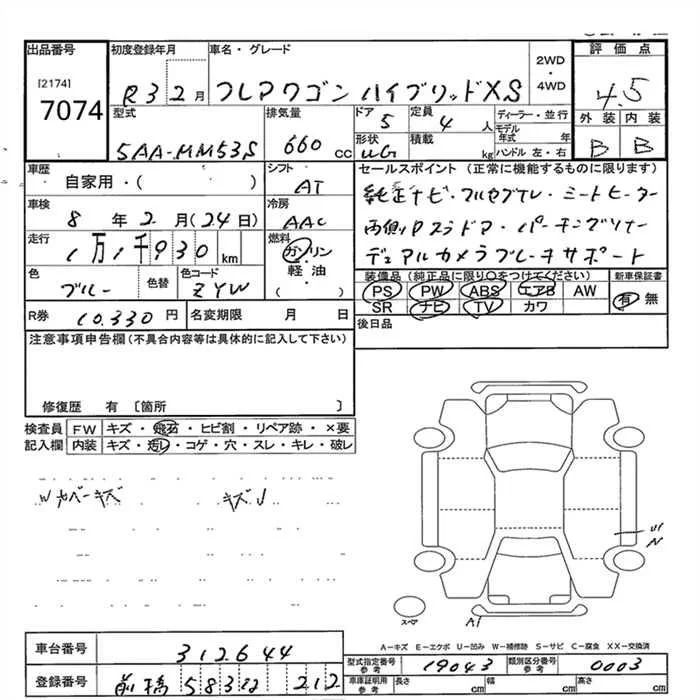 出品番号
[2174]
7074
初度登録年月
R3 2月
車名・グレード
フレアワゴン ハイブリッドXS
2WD
・
4WD
評価点
4.5
外装 内装
B B
型式
5AA-MM53S
排気量
660 cc
ドア
5
定員
4 人
形状
積載
kg
ディーラー・並行
モデル年式 年
ハンドル 左・右
車歴
自家用・( )
車検
8 年 2 月 (24日)
走行
1万1千930 km
色
ブルー
色替
色コード
ZYW
シフト
AT
冷房
AAC
燃料
ガソリン
・
軽油
( )
セールスポイント (正常に機能するものに限ります)
純正ナビ・フルセグTV・シートヒーター
両側Pスラドア・パーキングソナー
デュアルカメラブレーキサポート
装備品 (純正品に限り○をつけてください)
PS PW ABS エアB AW
SR ナビ TV カワ
新車保証書
有 無
後日品
R券 10.330 円
名変期限 月 日
注意事項申告欄 (不具合内容等は具体的に記入して下さい)
修復歴 有 〔箇所 〕
検査員記入欄
FW キズ・飛石・ヒビ割・リペア跡・×要
内装 キズ・汚レ・コゲ・穴・スレ・キレ・破レ
カバーキズ
キズ
A1
A-キズ E-エクボ U-凹み W-補修跡 S-サビ C-腐食 XX-交換済
車台番号
312644
登録番号
前橋 583 212
型式指定番号 参考
19043
類別区分番号 参考
0003
車庫証明用 参考
長さ cm 幅 cm 高さ cm